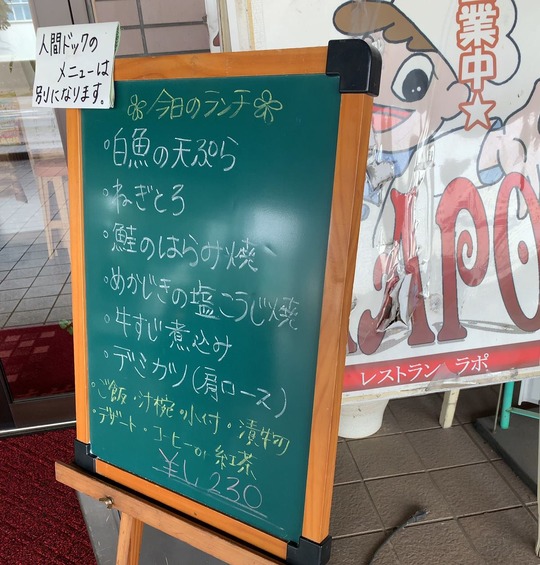 人間ドックの
メニューは
別になります。
今日のランチ
・白魚の天ぷら
・ねぎとろ
・鮭のはらみ焼
・めかじきの塩こうじ焼
・牛すじ煮込み
・デミカツ(肩ロース)
・ご飯・汁椀・小付・漬物
・デザート・コーヒーor紅茶
¥1,230
業中★
APO
レストラン ラポ